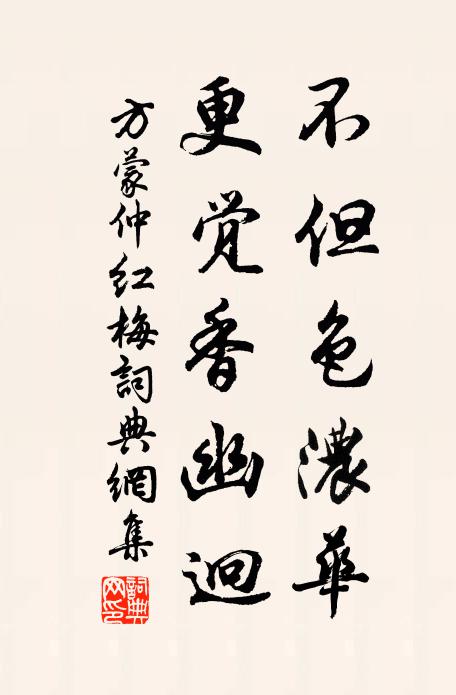 不但色濃華
更覚香幽迥
方蒙仲红梅詞典網集
詞典网印